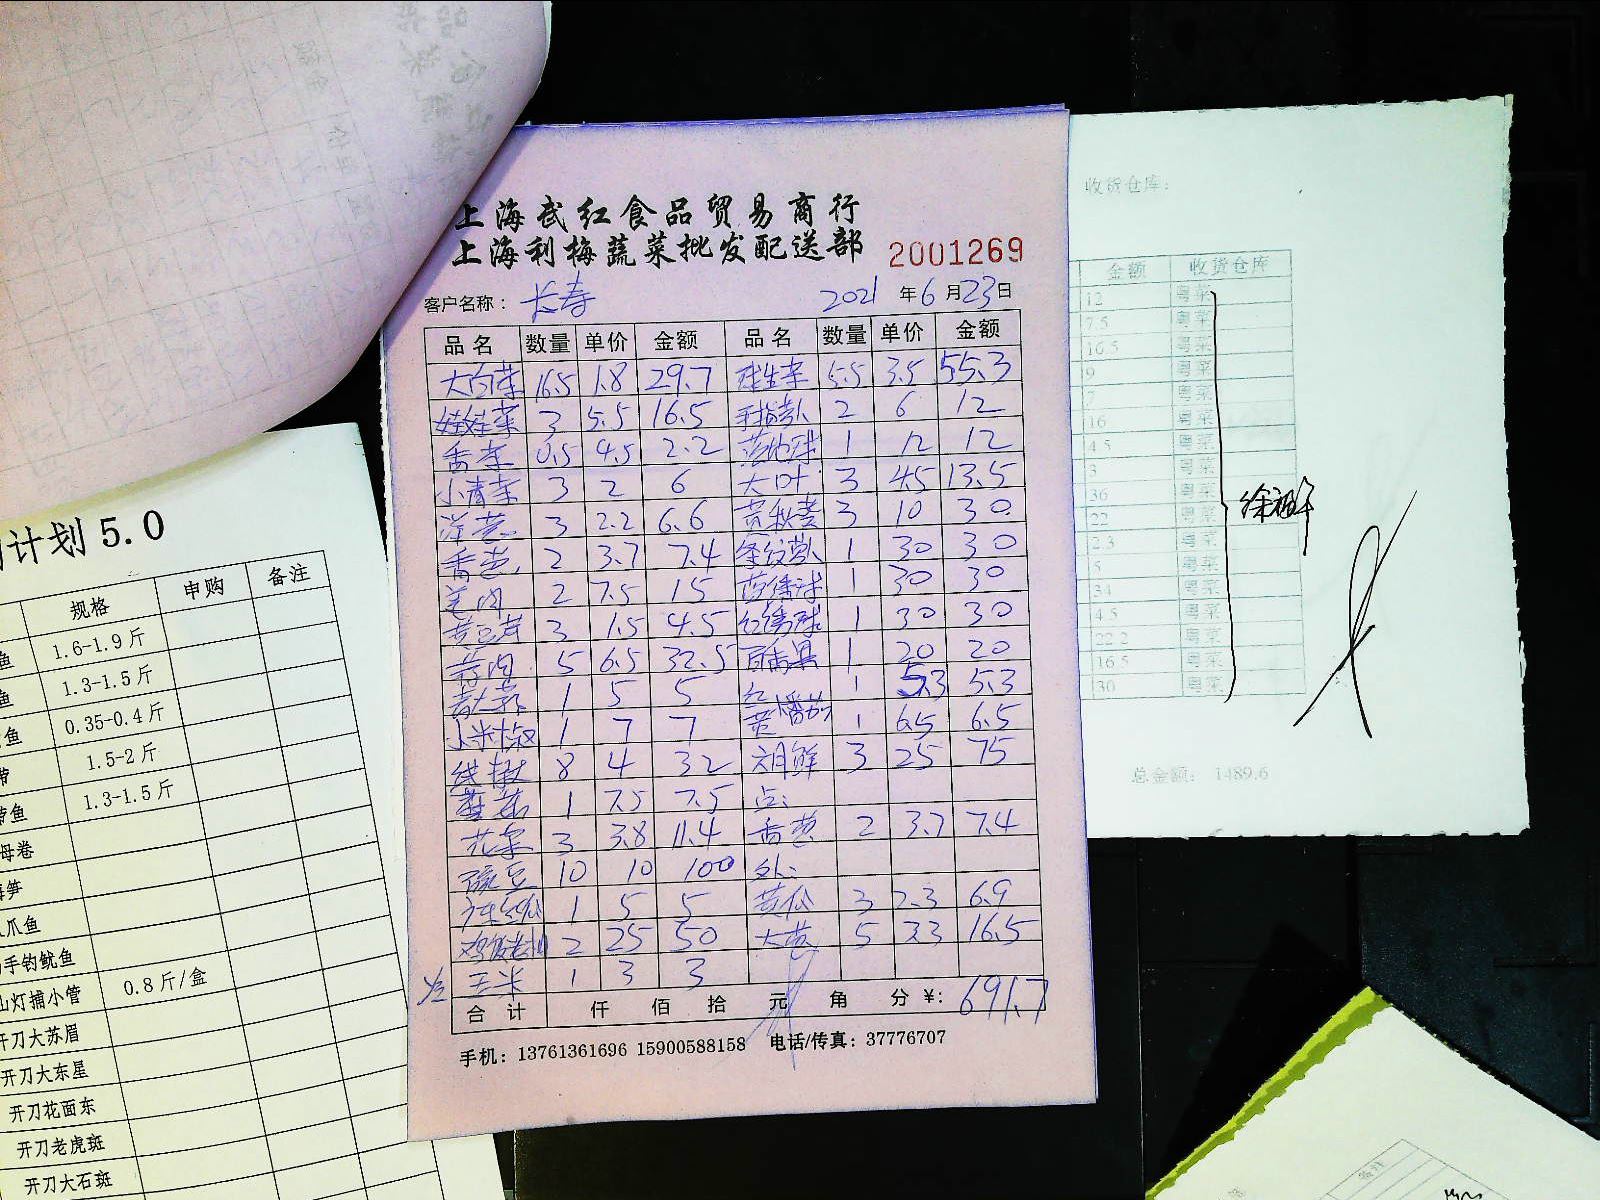 上海武红食品贸易商行
上海利梅蔬菜批发配送部 2001269
客户名称：长寿 2021年6月23日
品名 数量 单价 金额 品名 数量 单价 金额
大白菜 16.5 1.8 29.7 球生菜 5.5 3.5 55.3
娃娃菜 3 5.5 16.5 手指萝卜 2 6 12
香菜 0.5 4.5 2.2 1 12 12
小青菜 3 2 6 大叶 3 4.5 13.5
洋葱 3 2.2 6.6 黄秋葵 3 10 30
香葱 2 3.7 7.4 条纹 1 30 30
姜肉 2 7.5 15 1 30 30
黄豆芽 3 1.5 4.5 红绣球 1 30 30
蒜肉 5 6.5 32.5 百香果 1 20 20
青大 1 5 5 红 1 5.3 5.3
小米椒 1 7 7 黄番茄 1 6.5 6.5
线椒 8 4 32 六月鲜 3 25 75
1 7.5 7.5 点：
花菜 3 3.8 11.4 香葱 2 3.7 7.4
豌豆 10 10 100 外：
1 5 5 黄瓜 3 2.3 6.9
2 25 50 大葱 5 3.3 16.5
玉米 1 3 3
合计 仟 佰 拾 元 角 分 ¥：691.7
手机：13761361696 15900588158 电话/传真：37776707
计划 5.0
规格 申购 备注
鱼 1.6-1.9 斤
鱼 1.3-1.5 斤
鱼 0.35-0.4 斤
带 1.5-2 斤
带鱼 1.3-1.5 斤
母卷
笋
爪鱼
手钓鱿鱼
山灯捕小管 0.8 斤/盒
开刀大苏眉
开刀大东星
开刀花面东
开刀老虎斑
开刀大石斑
收货仓库：
金额 收货仓库
12 粤菜
7.5 粤菜
16.5 粤菜
9 粤菜
7 粤菜
16 粤菜
4.5 粤菜
3 粤菜
36 粤菜
22 粤菜
2.3 粤菜
5 粤菜
34 粤菜
4.5 粤菜
22.2 粤菜
16.5 粤菜
30 粤菜
总金额：1489.6
备注